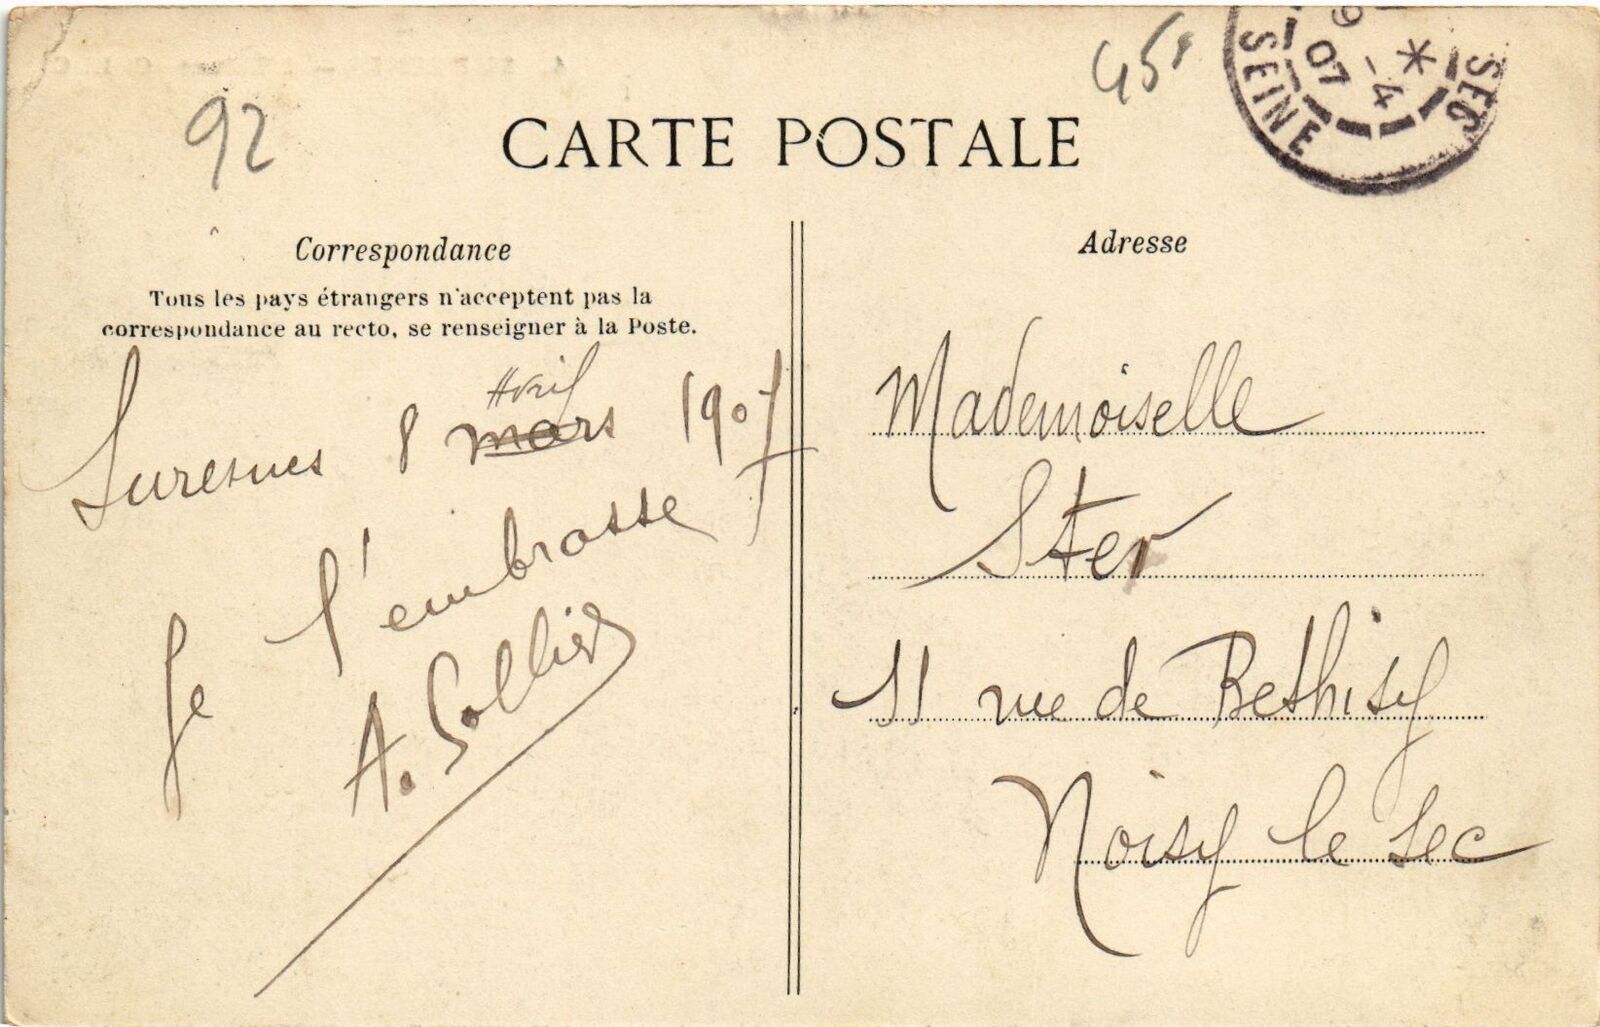 92
45
CARTE POSTALE
9 -4 07
SEINE
SEC
Correspondance
Tous les pays étrangers n'acceptent pas la
correspondance au recto, se renseigner à la Poste.
Avril
Suresnes 8 mars 1907
Je t'embrasse
A. Sollier
Adresse
Mademoiselle
Ster
11 rue de Bethisy
Noisy le Sec